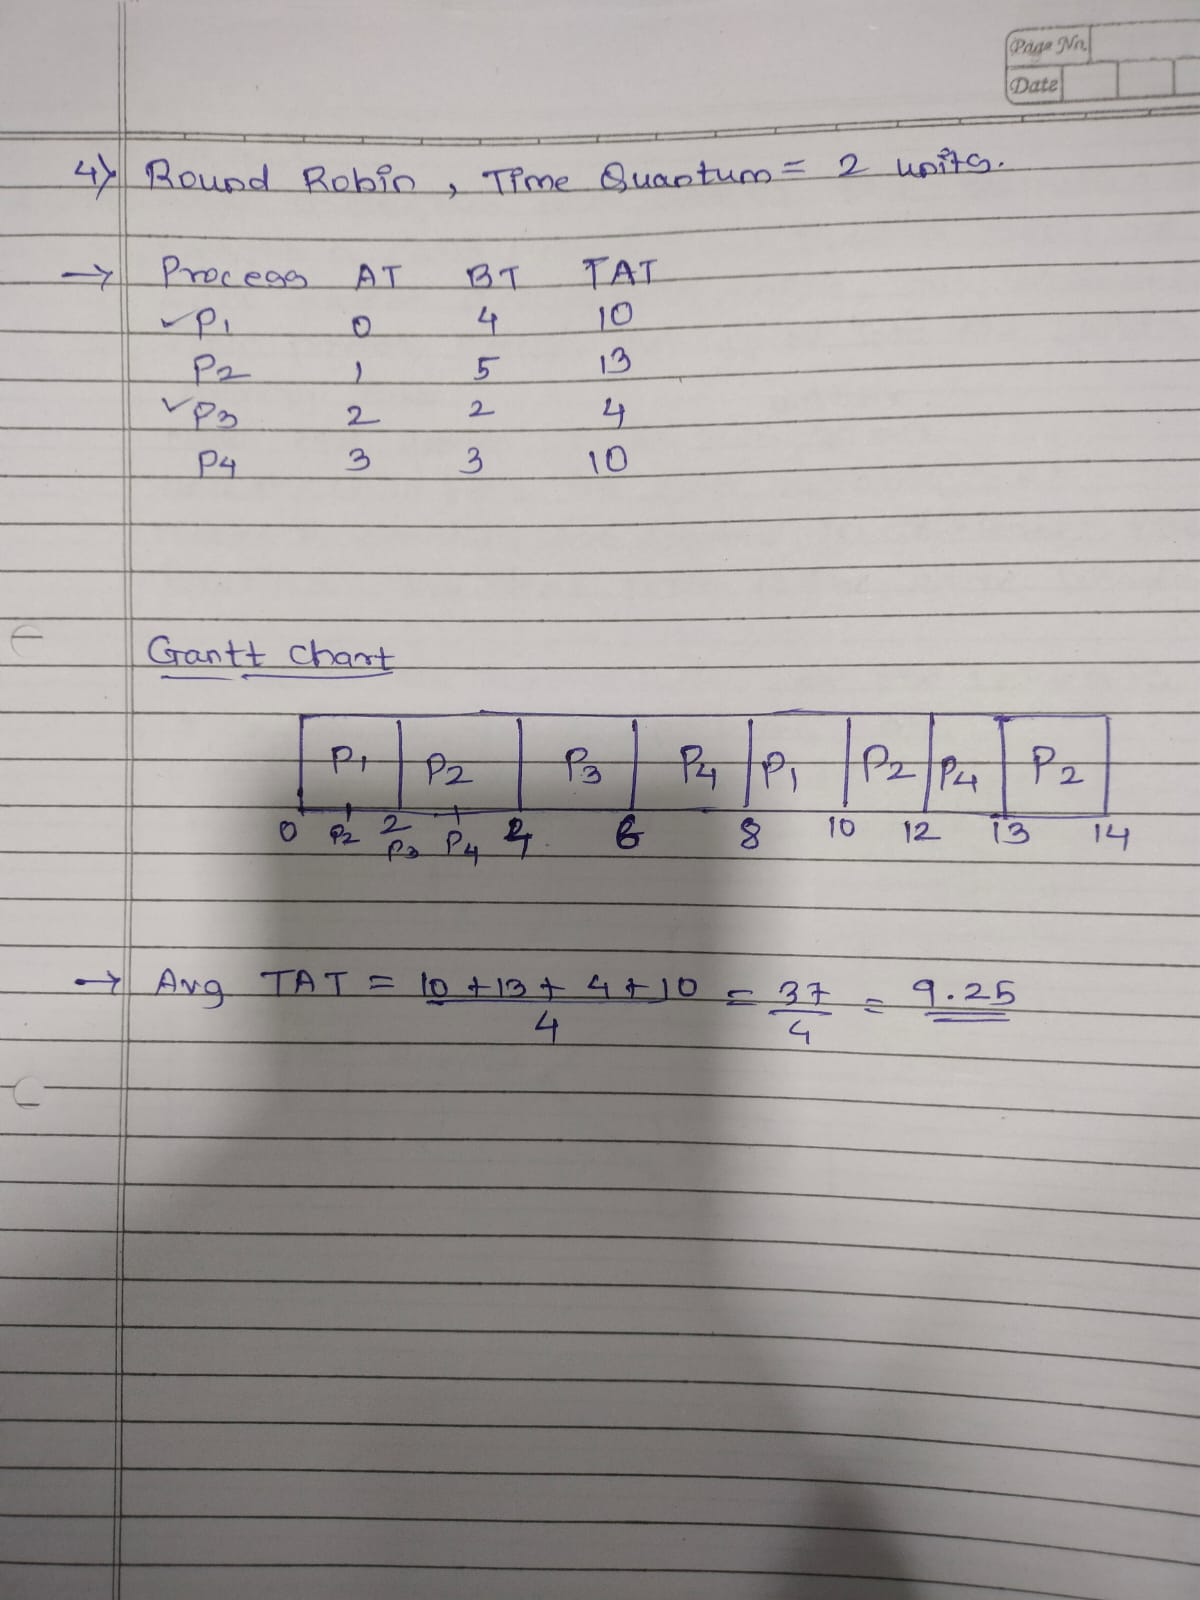 Page No.
Date
4) Round Robin, Time Quantum = 2 units.
→ Process AT BT TAT
✓P1 0 4 10
P2 1 5 13
✓P3 2 2 4
P4 3 3 10
Gantt chart
P1 P2 P3 P4 P1 P2 P4 P2
0 P2 2 P3 P4 4 6 8 10 12 13 14
→ Avg TAT = 10+13+4+10 / 4 = 37 / 4 = 9.25